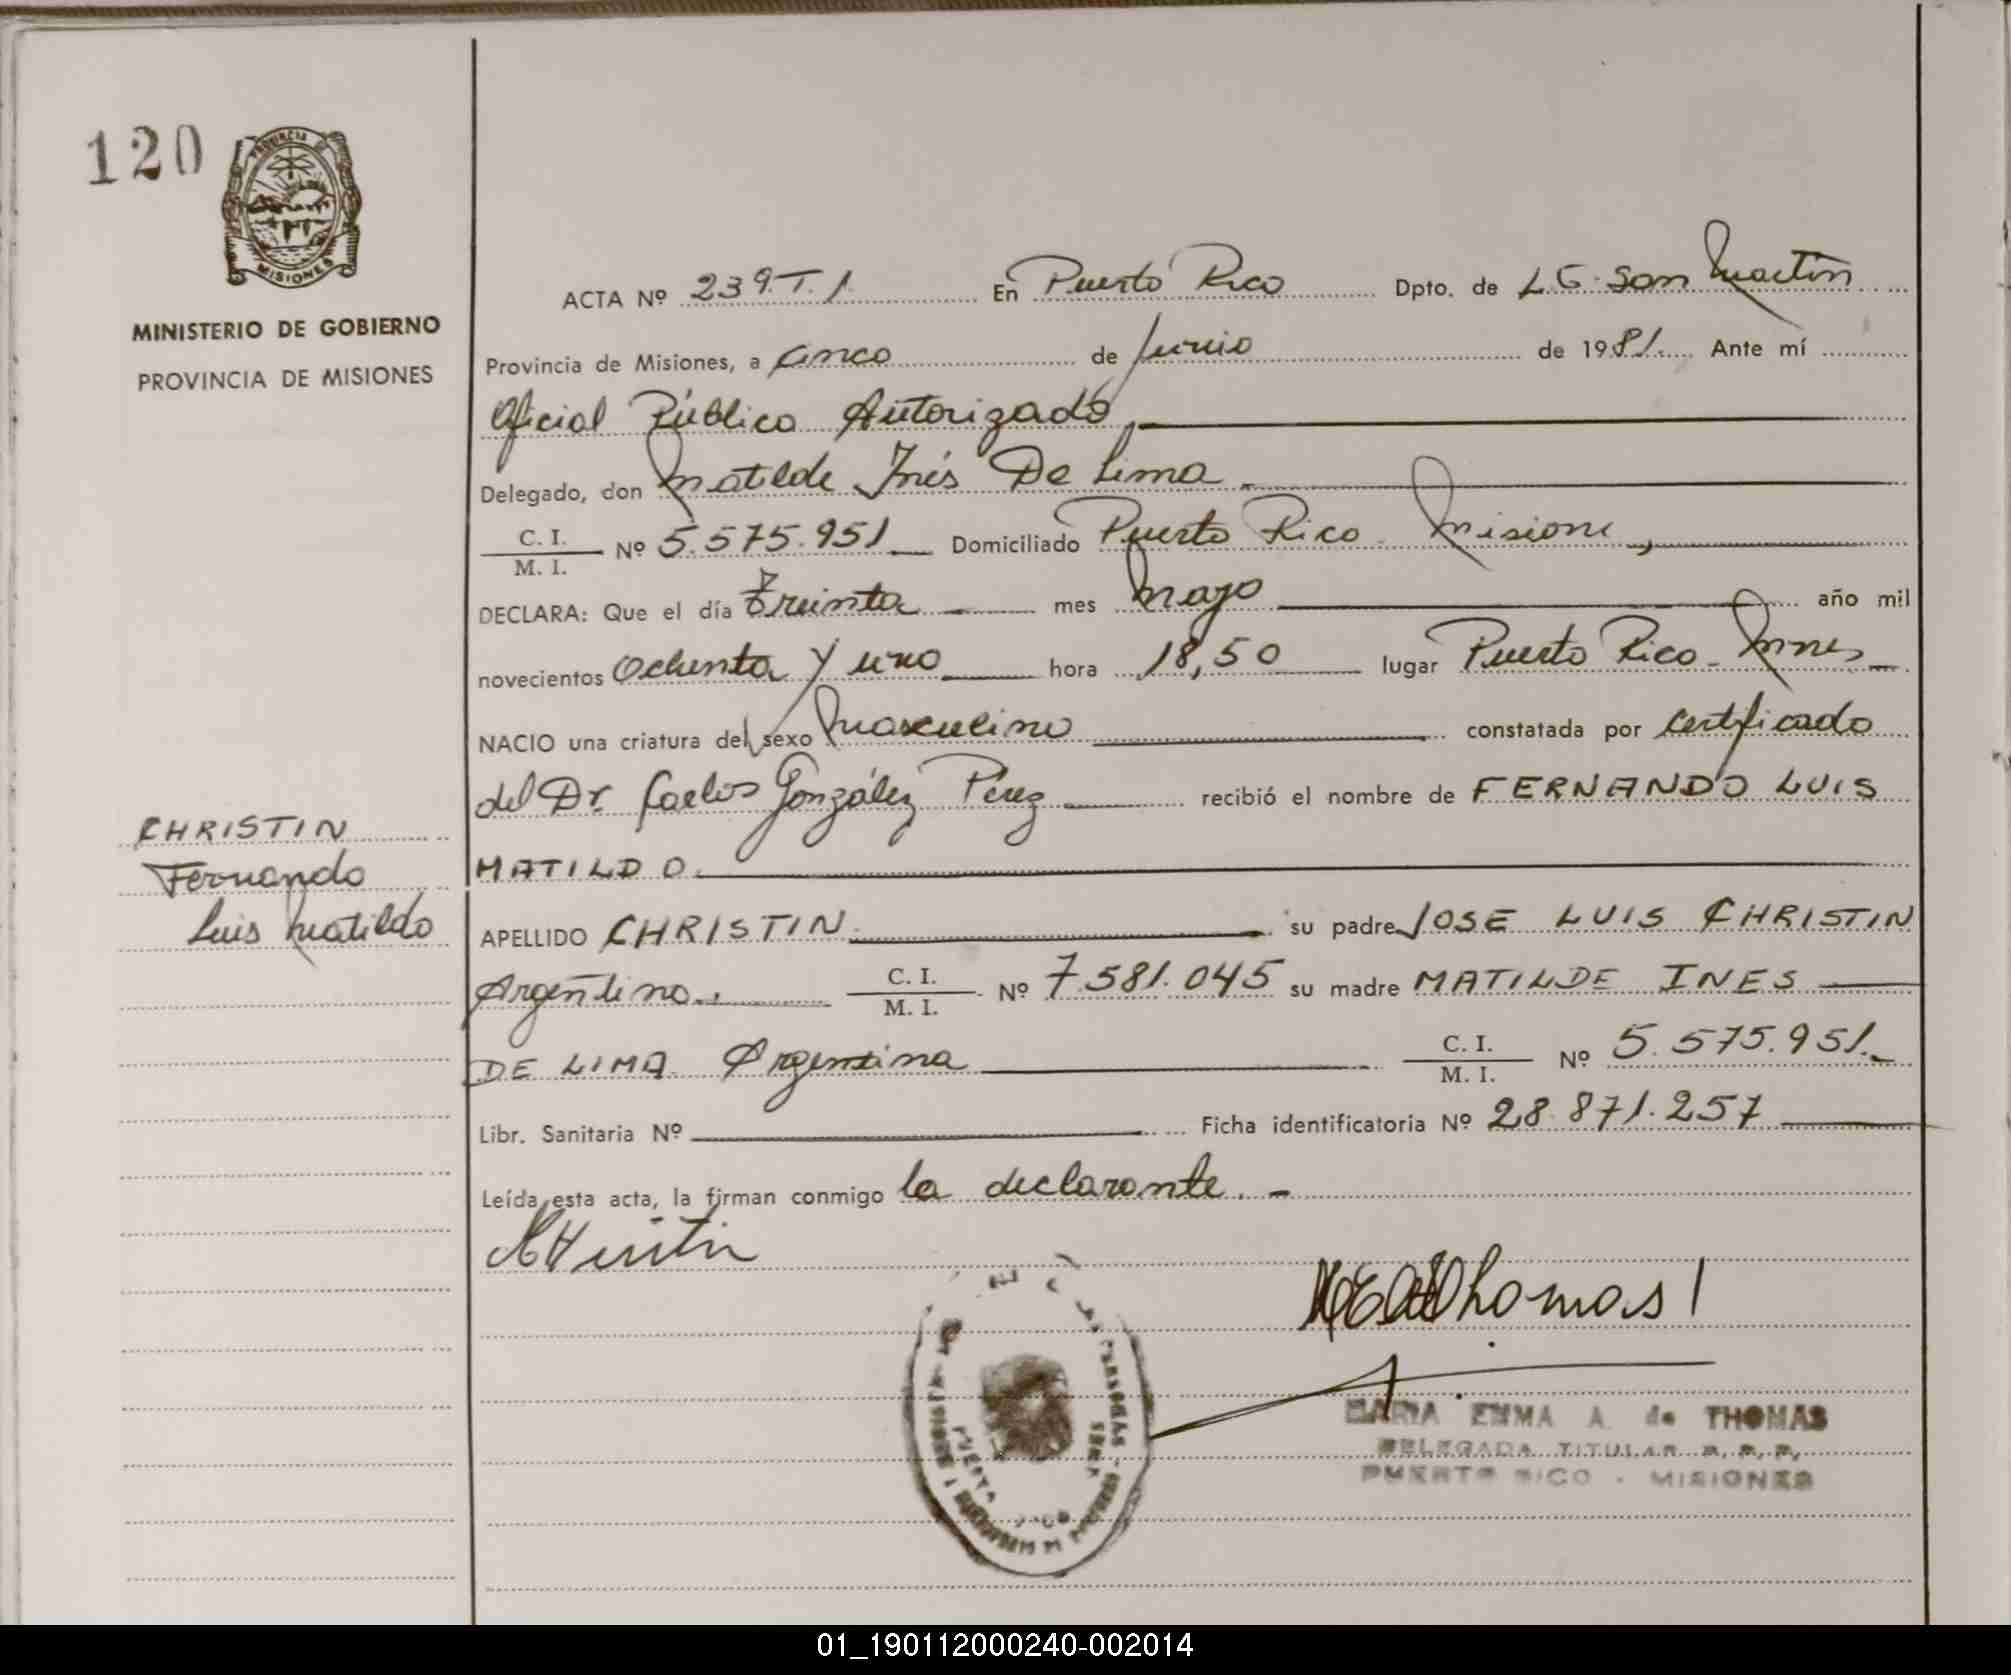 120
PROVINCIA DE
MISIONES
MINISTERIO DE GOBIERNO
PROVINCIA DE MISIONES
CHRISTIN
Fernando
Luis Matildo
ACTA Nº 239.T.1. En Puerto Rico Dpto. de L.G. San Martin
Provincia de Misiones, a cinco de Junio de 1981. Ante mí
Oficial Público Autorizado
Delegado, don Matilde Inés De Lima
C. I. / M. I. Nº 5.575.951 Domiciliado Puerto Rico - Misiones
DECLARA: Que el día treinta mes Mayo año mil
novecientos Ochenta y uno hora 18,50 lugar Puerto Rico - Mnes
NACIO una criatura del sexo Masculino constatada por certificado
del Dr. Carlos González Pérez recibió el nombre de FERNANDO LUIS
MATILDO.
APELLIDO CHRISTIN su padre JOSE LUIS CHRISTIN
Argentino. C. I. / M. I. Nº 7.581.045 su madre MATILDE INES
DE LIMA Argentina C. I. / M. I. Nº 5.575.951.
Libr. Sanitaria Nº Ficha identificatoria Nº 28.871.257
Leída esta acta, la firman conmigo la declarante. -
MEAdThomas
MARIA EMMA A. de THOMAS
DELEGADA TITULAR R. P. P.
PUERTO RICO - MISIONES
01_190112000240-002014